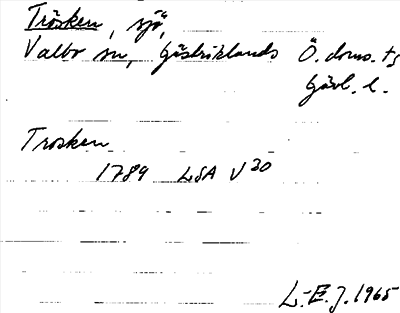 Trösken, sjö,
Valbo sn, Gästriklands Ö. doms. tg
Gävl. l.
Trosken
1789 LSA V 30
L.-E. J. 1965